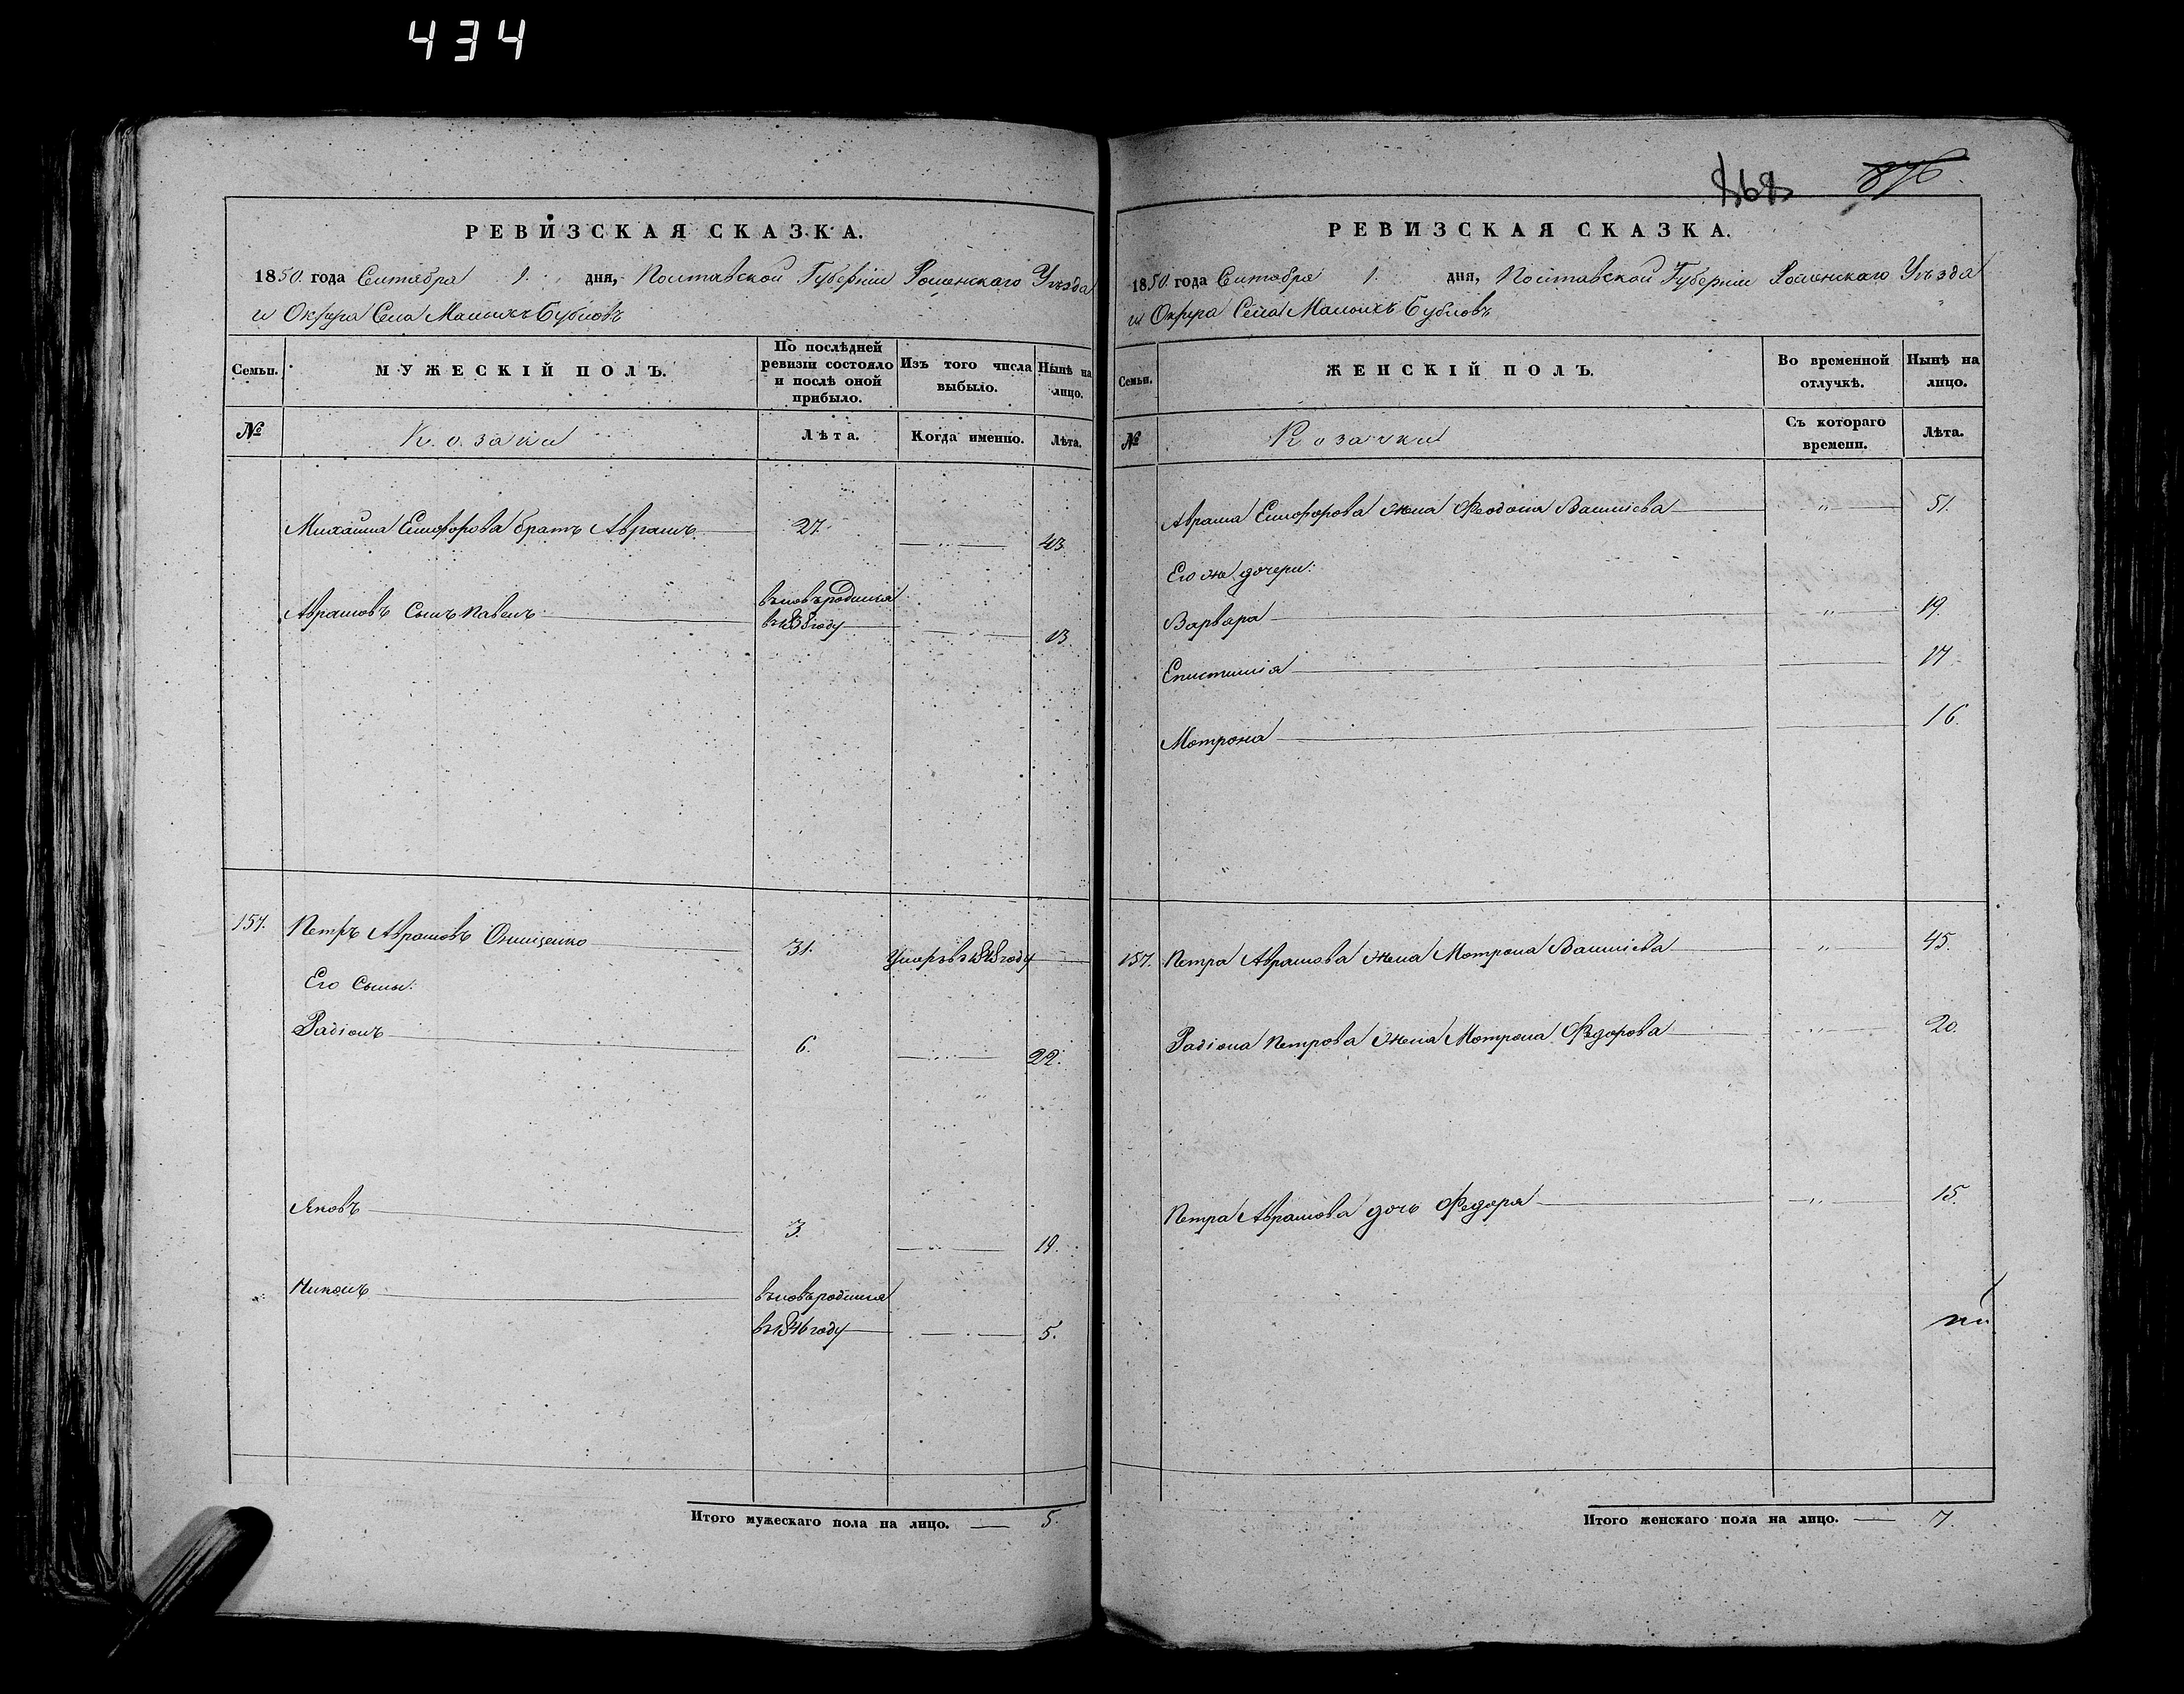 434
РЕВИЗСКАЯ СКАЗКА.
1850. года Сентября 1. дня, Полтавской Губерніи Роменскаго Уѣзда
и Округа Села Малыхъ Бубновъ
Семьи.
МУЖЕСКІЙ ПОЛЪ.
По послѣдней ревизіи состояло и послѣ оной прибыло.
Изъ того числа выбыло.
Нынѣ на лицо.
№
Козаки
Лѣта.
Когда именно.
Лѣта.
Михайла братъ Аврамъ 27. 43.
Аврамовъ Сынъ Павелъ вновьродился
въ1838году 13.
157. Петръ Аврамовъ Онищенко 31. Умеръвъ1848году
Его Сыны:
Радіонъ 6. 22.
Яковъ 3. 19.
Никонъ вновьродился
въ1846году 5.
Итого мужескаго пола на лицо. 5.
868 876.
РЕВИЗСКАЯ СКАЗКА.
1850. года Сентября 1. дня, Полтавской Губерніи Роменскаго Уѣзда
и Округа Села Малыхъ Бубновъ
Семьи.
ЖЕНСКІЙ ПОЛЪ.
Во временной отлучкѣ.
Нынѣ на лицо.
№
Козачки
Съ котораго времени.
Лѣта.
Аврама жена Феодосія Василіева 51.
Его же дочери:
Варвара 19.
Епистимія 17
Мотрона 16.
157. Петра Аврамова жена Мотрона Василіева 45.
Радіона Петрова жена Мотрона Федорова 20.
Петра Аврамова дочь Федора 15.
Итого женскаго пола на лицо. 7.